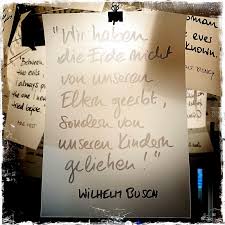 "Wir haben
die Erde nicht
von unseren
Eltern geerbt,
sondern von
unseren Kindern
geliehen!"
WILHELM BUSCH
Between
the evils
I always
the one I
tried before
MAE WEST
woman
ever
known.